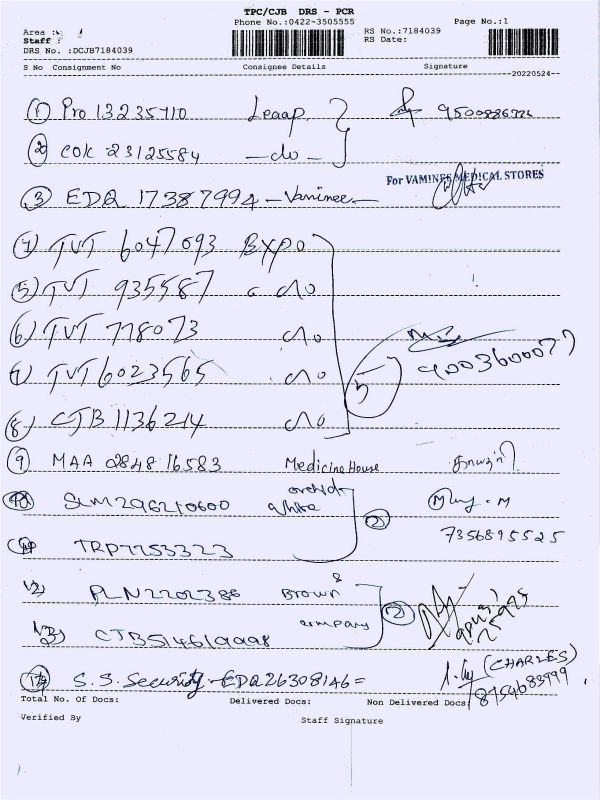 TPC/CJB DRS - PCR
Phone No.:0422-3505555 Page No.:1
Area : RS No.:7184039
Staff : RS Date:
DRS No. :DCJB7184039
S No Consignment No Consignee Details Signature
20220524
1 Pro 13235710 Leaap
2 COK 23125584 - do -
3 EDQ 17387994 - Vaminee - For VAMINEE MEDICAL STORES
4) TVT 6047093 Expo
5) TVT 935587 do
6) TVT 778073 do
7) TVT 6023565 do 5 9003600077
8) CTB 1136214 do
9 MAA 284816583 Medicine House
10 SLM296210600 orchid white M
11 TRP7753323 7356895525
12) PLN2202386 Brown &
13) CTB514619998 company
14 S.S. Security - EDQ26308146 = (CHARLES)
8754683999
Total No. Of Docs: Delivered Docs: Non Delivered Docs:
Verified By Staff Signature